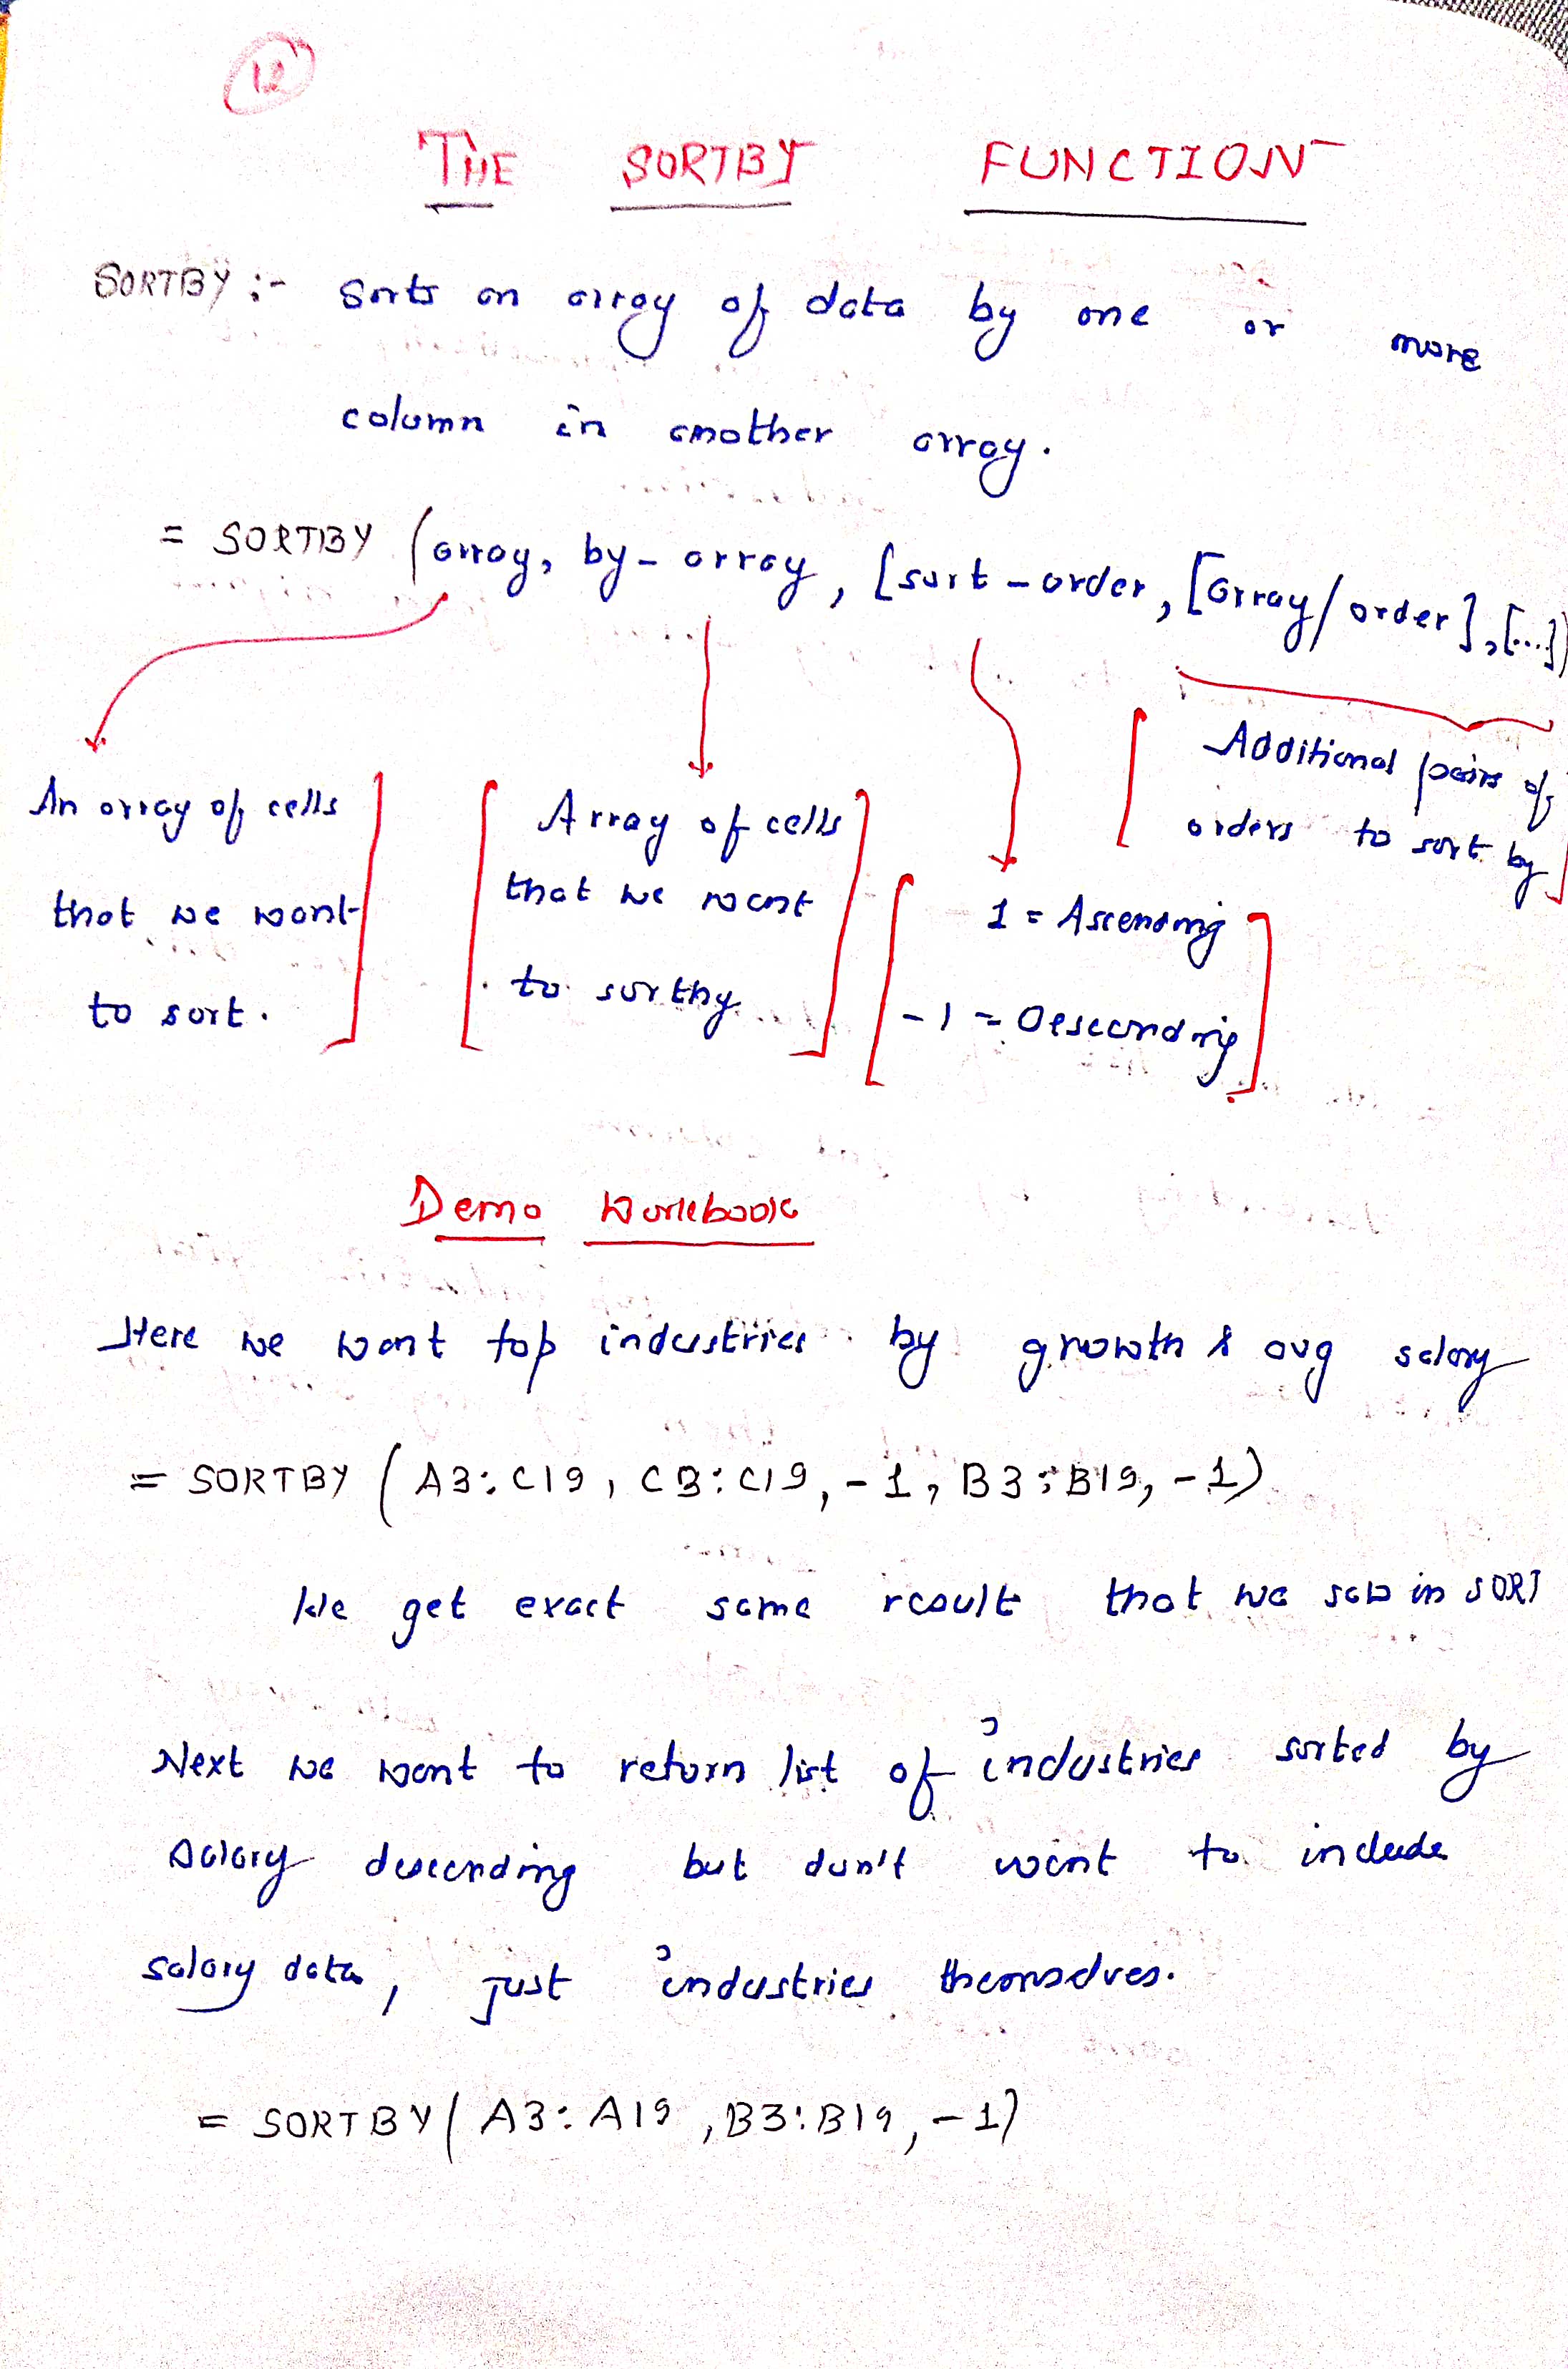 12
THE SORTBY FUNCTION
SORTBY :- Sorts an array of data by one or more
column in another array.
= SORTBY (array, by-array, [sort-order, [array/order], [...])
An array of cells
that we want
to sort.
Array of cells
that we want
to sortby
1 = Ascending
-1 = Descending
Additional pairs of
orders to sort by
Demo Workbook
Here we want top industries by growth & avg salary
= SORTBY (A3:C19, C3:C19, -1, B3:B19, -1)
We get exact same result that we saw in SORT
Next we want to return list of industries sorted by
salary descending but don't want to include
salary data, just industries themselves.
= SORTBY (A3:A19, B3:B19, -1)